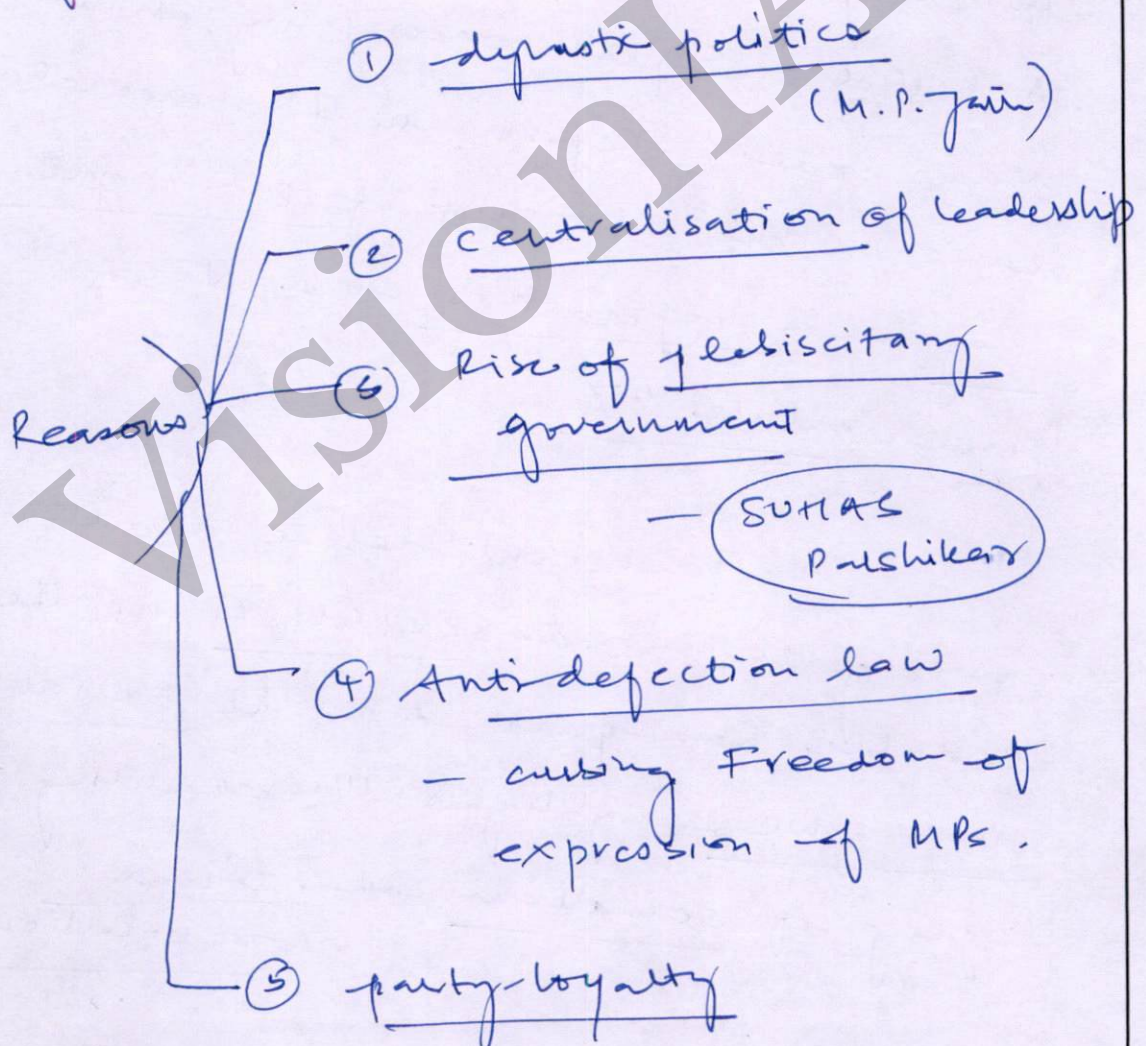 ① dynastic politics
(M.P. Jain)
② centralisation of leadership
Reasons
③ Rise of plebiscitary
government
— SUHAS
Palshikar
④ Anti-defection law
— curbing Freedom of
expression of MPs.
⑤ party-loyalty
VisionIA